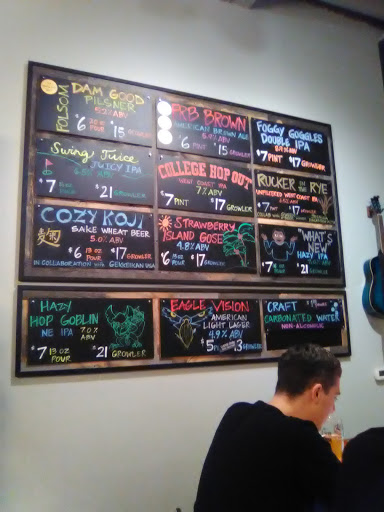 FOLSOM
DAM GOOD
PILSNER
5.2% ABV
$6 20 OZ POUR $15 GROWLER
PRB BROWN
AMERICAN BROWN ALE
5.9% ABV
$6 PINT $15 GROWLER
FOGGY GOGGLES
DOUBLE IPA
$7 PINT $17 GROWLER
Swing Juice
JUICY IPA
$7 $21 GROWLER
COLLEGE HOP OUT
WEST COAST IPA
7% ABV
$7 PINT $17 GROWLER
RUCKER IN THE RYE
UNFILTERED WEST COAST IPA
$7 PINT $17 GROWLER
COZY KOJI
SAKE WHEAT BEER
5.0% ABV
$6 13 OZ POUR $17 GROWLER
IN COLLABORATION WITH GEKKEIKAN USA
STRAWBERRY
ISLAND GOSE
4.8% ABV
$6 13 OZ POUR $17 GROWLER
"WHAT'S
NEW"
HAZY IPA
$7 $21 GROWLER
HAZY
HOP GOBLIN
NE IPA 7.0% ABV
$7 13 OZ POUR $21 GROWLER
EAGLE VISION
AMERICAN
LIGHT LAGER
4.9% ABV
$5 $13 GROWLER
CRAFT
CARBONATED WATER
NON-ALCOHOLIC